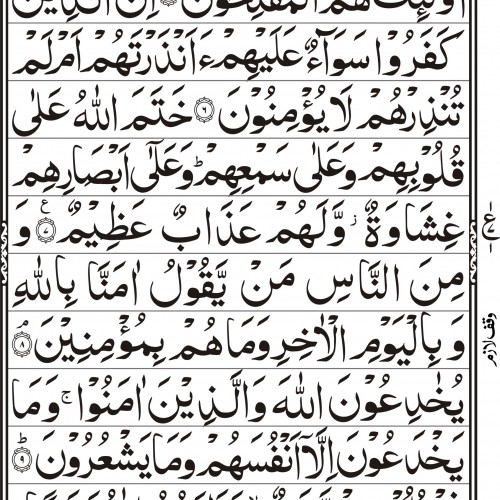 اُولٰٓئِكَ هُمُ الْمُفْلِحُوْنَ اِنَّ الَّذِيْنَ
كَفَرُوْا سَوَآءٌ عَلَيْهِمْ ءَاَنْذَرْتَهُمْ اَمْ لَمْ
تُنْذِرْهُمْ لَا يُؤْمِنُوْنَ ۶ خَتَمَ اللهُ عَلٰى
قُلُوْبِهِمْ وَعَلٰى سَمْعِهِمْ ؕ وَعَلٰٓى اَبْصَارِهِمْ
غِشَاوَةٌ ز وَّلَهُمْ عَذَابٌ عَظِيْمٌ ۷ ع وَ
مِنَ النَّاسِ مَنْ يَّقُوْلُ اٰمَنَّا بِاللهِ
وَ بِالْيَوْمِ الْاٰخِرِ وَمَا هُمْ بِمُؤْمِنِيْنَ ۘ ۸
يُخٰدِعُوْنَ اللهَ وَالَّذِيْنَ اٰمَنُوْا ۚ وَمَا
يَخْدَعُوْنَ اِلَّآ اَنْفُسَهُمْ وَمَا يَشْعُرُوْنَ ؕ ۹
وقف لازم